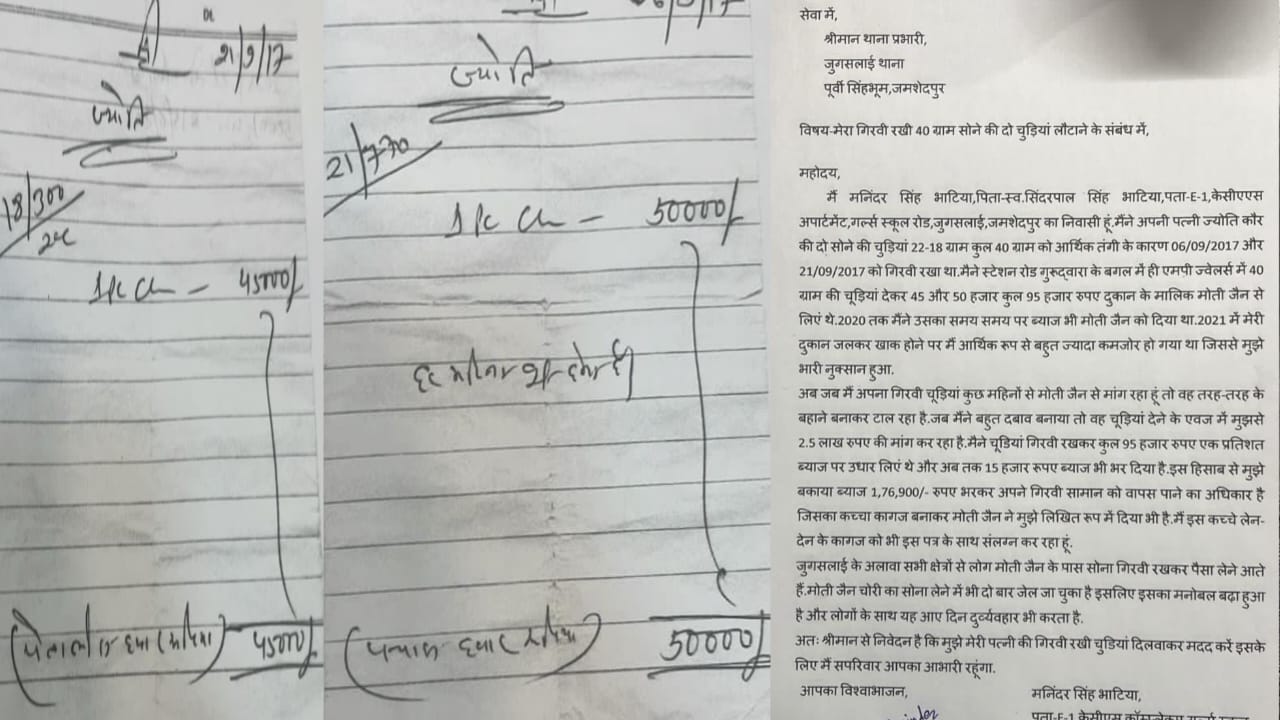 21/9/17
ज्योति
18/300
1 pc Ch — 45000/-
45000/-
ज्योति
21/770
1 pc Ch — 50000/-
50000/-
सेवा में,
श्रीमान थाना प्रभारी,
जुगसलाई थाना
पूर्वी सिंहभूम,जमशेदपुर
विषय-मेरा गिरवी रखी 40 ग्राम सोने की दो चुड़ियां लौटाने के संबंध में,
महोदय,
मैं मनिंदर सिंह भाटिया,पिता-स्व.सिंदरपाल सिंह भाटिया,पता-E-1,केसीएएस
अपार्टमेंट,गर्ल्स स्कूल रोड,जुगसलाई,जमशेदपुर का निवासी हूं.मैंने अपनी पत्नी ज्योति कौर
की दो सोने की चुड़ियां 22-18 ग्राम कुल 40 ग्राम को आर्थिक तंगी के कारण 06/09/2017 और
21/09/2017 को गिरवी रखा था.मैने स्टेशन रोड गुरूद्वारा के बगल में ही एमपी ज्वेलर्स में 40
ग्राम की चूड़ियां देकर 45 और 50 हजार कुल 95 हजार रुपए दुकान के मालिक मोती जैन से
लिएं थे.2020 तक मैंने उसका समय समय पर ब्याज भी मोती जैन को दिया था.2021 में मेरी
दुकान जलकर खाक होने पर मैं आर्थिक रूप से बहुत ज्यादा कमजोर हो गया था जिससे मुझे
भारी नुक्सान हुआ.
अब जब मैं अपना गिरवी चूड़ियां कुछ महिनों से मोती जैन से मांग रहा हूं तो वह तरह-तरह के
बहाने बनाकर टाल रहा है.जब मैंने बहुत दबाव बनाया तो वह चूड़ियां देने के एवज में मुझसे
2.5 लाख रुपए की मांग कर रहा है.मैने चूड़ियां गिरवी रखकर कुल 95 हजार रुपए एक प्रतिशत
ब्याज पर उधार लिएं थे और अब तक 15 हजार रूपए ब्याज भी भर दिया है.इस हिसाब से मुझे
बकाया ब्याज 1,76,900/- रुपए भरकर अपने गिरवी सामान को वापस पाने का अधिकार है
जिसका कच्चा कागज बनाकर मोती जैन ने मुझे लिखित रूप में दिया भी है.मैं इस कच्चे लेन-
देन के कागज को भी इस पत्र के साथ संलग्न कर रहा हूं.
जुगसलाई के अलावा सभी क्षेत्रों से लोग मोती जैन के पास सोना गिरवी रखकर पैसा लेने आते
हैं.मोती जैन चोरी का सोना लेने में भी दो बार जेल जा चुका है इसलिए इसका मनोबल बढ़ा हुआ
है और लोगों के साथ यह आए दिन दुर्व्यवहार भी करता है.
अतः श्रीमान से निवेदन है कि मुझे मेरी पत्नी की गिरवी रखी चुड़ियां दिलवाकर मदद करें इसके
लिए मैं सपरिवार आपका आभारी रहूंगा.
आपका विश्वाभाजन,
मनिंदर सिंह भाटिया,